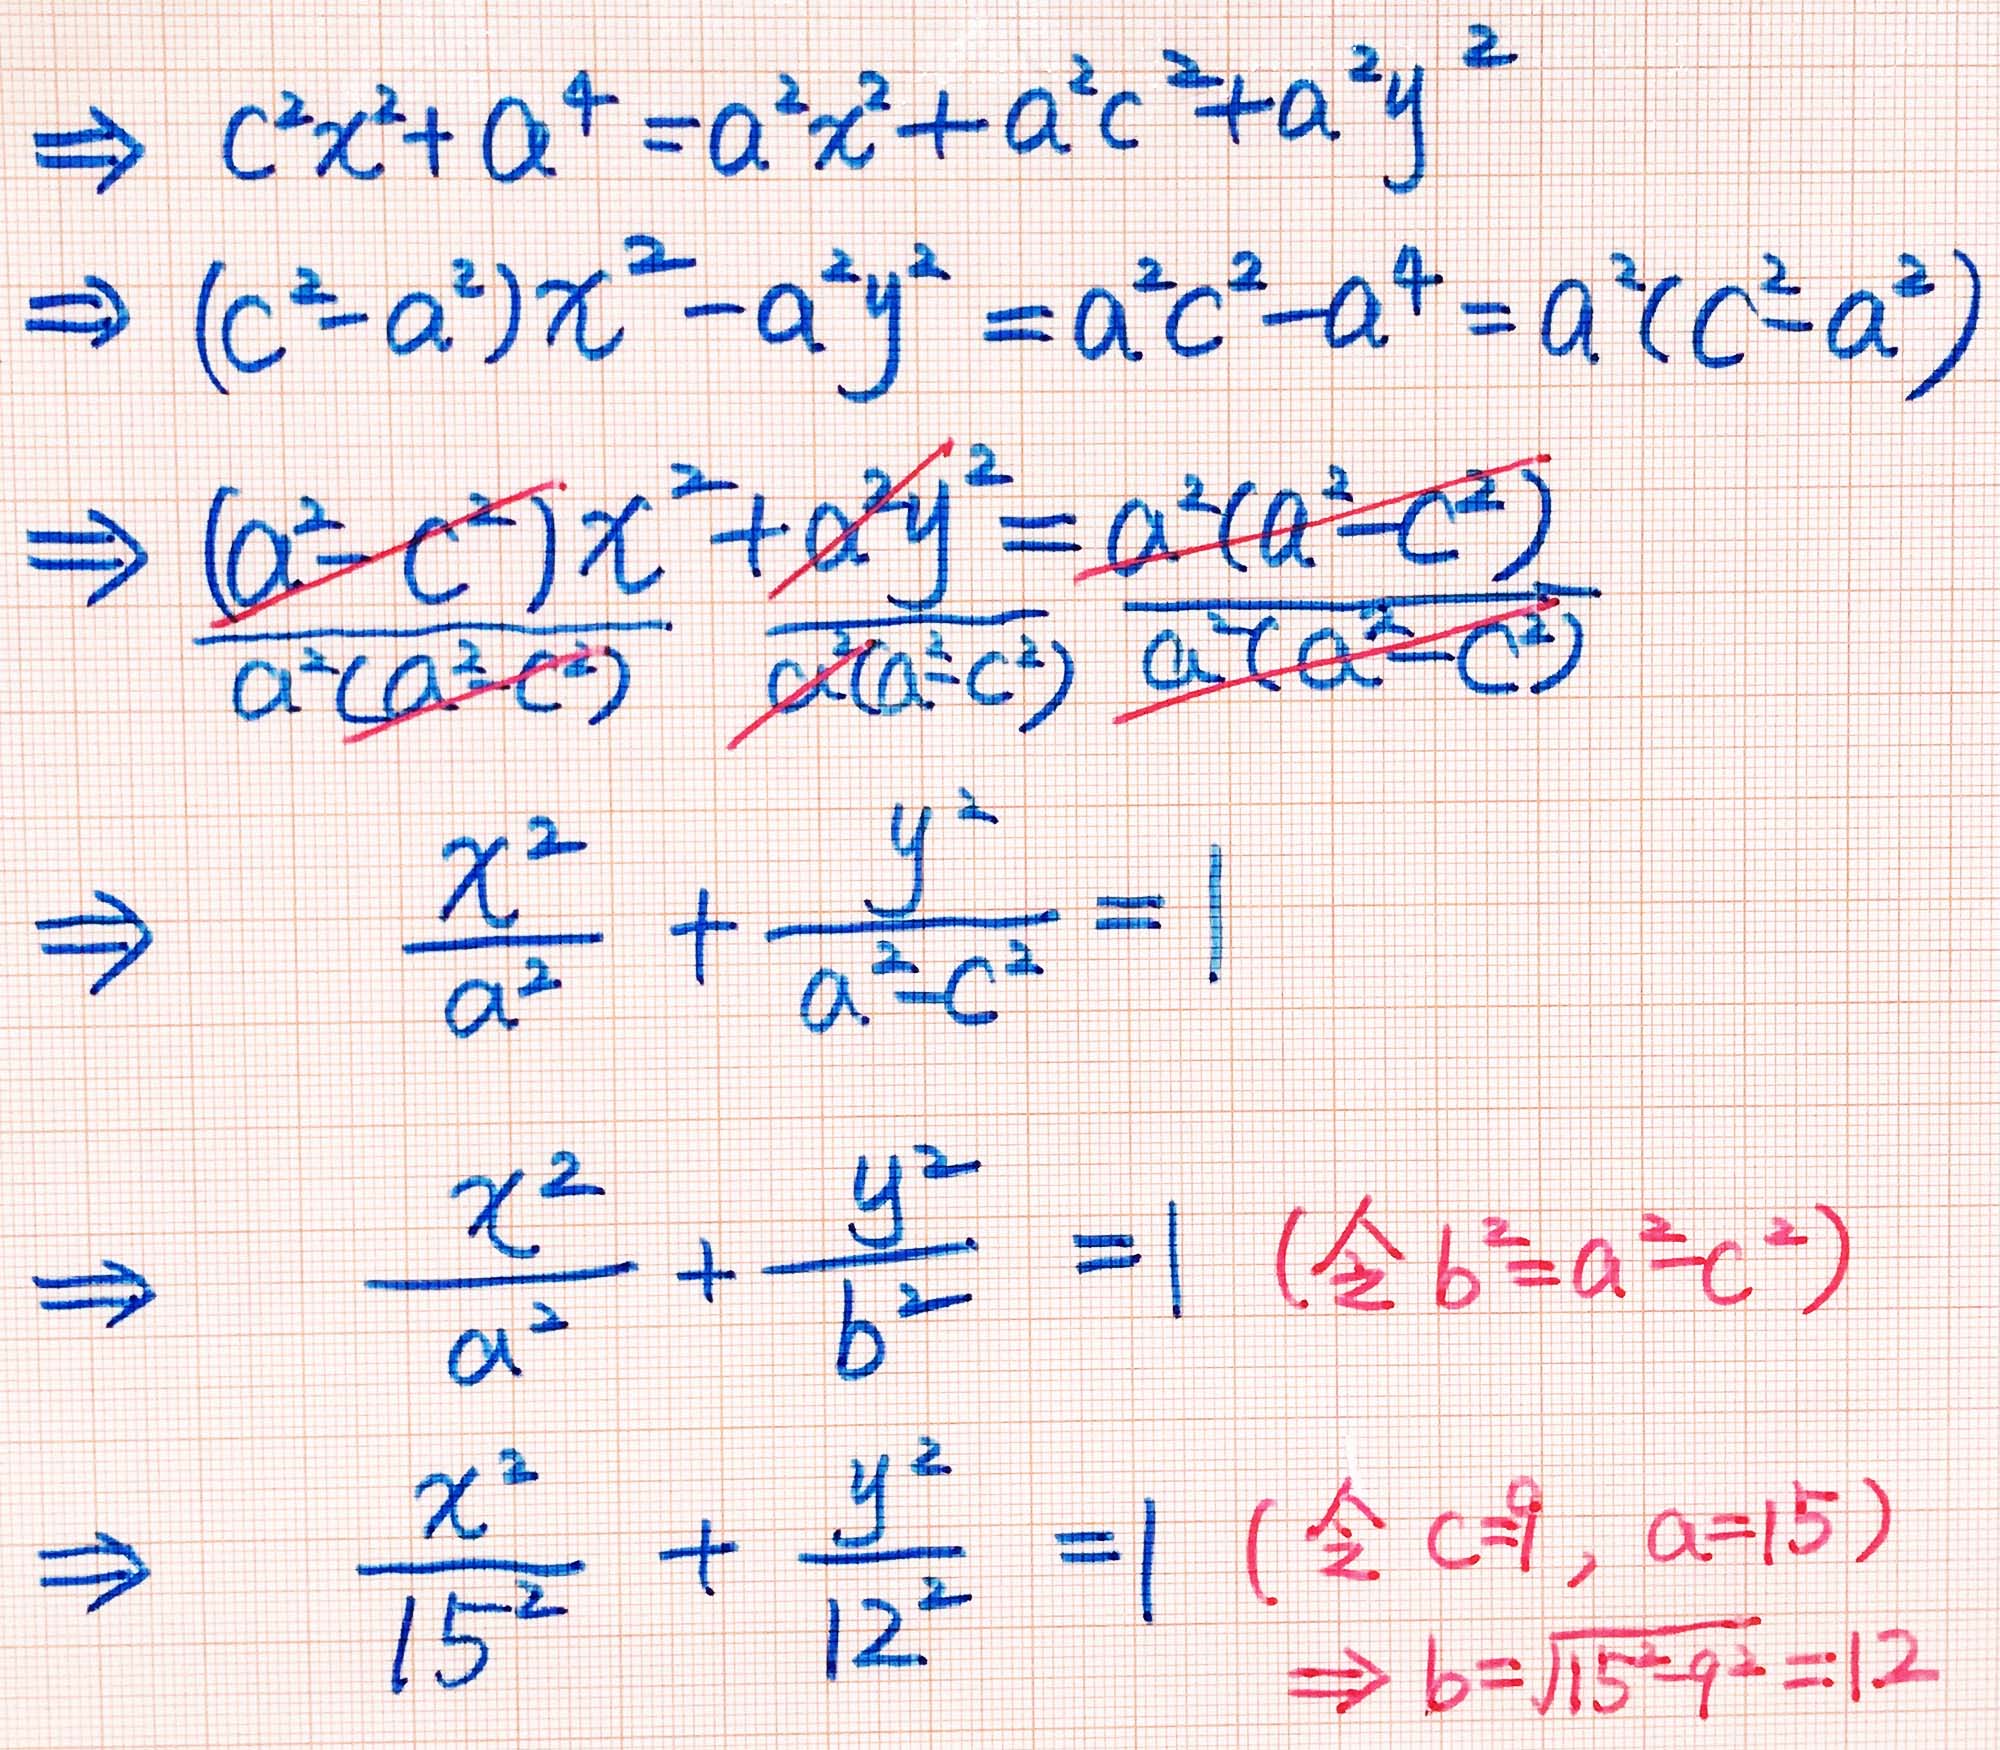 ⇒ c²x²+a⁴=a²x²+a²c²+a²y²
⇒ (c²-a²)x²-a²y²=a²c²-a⁴=a²(c²-a²)
⇒ (a²-c²)x²/a²(a²-c²)+a²y²/a²(a²-c²)=a²(a²-c²)/a²(a²-c²)
⇒ x²/a²+y²/a²-c²=1
⇒ x²/a²+y²/b²=1 (令b²=a²-c²)
⇒ x²/15²+y²/12²=1 (令c=9, a=15)
⇒ b=√15²-9²=12